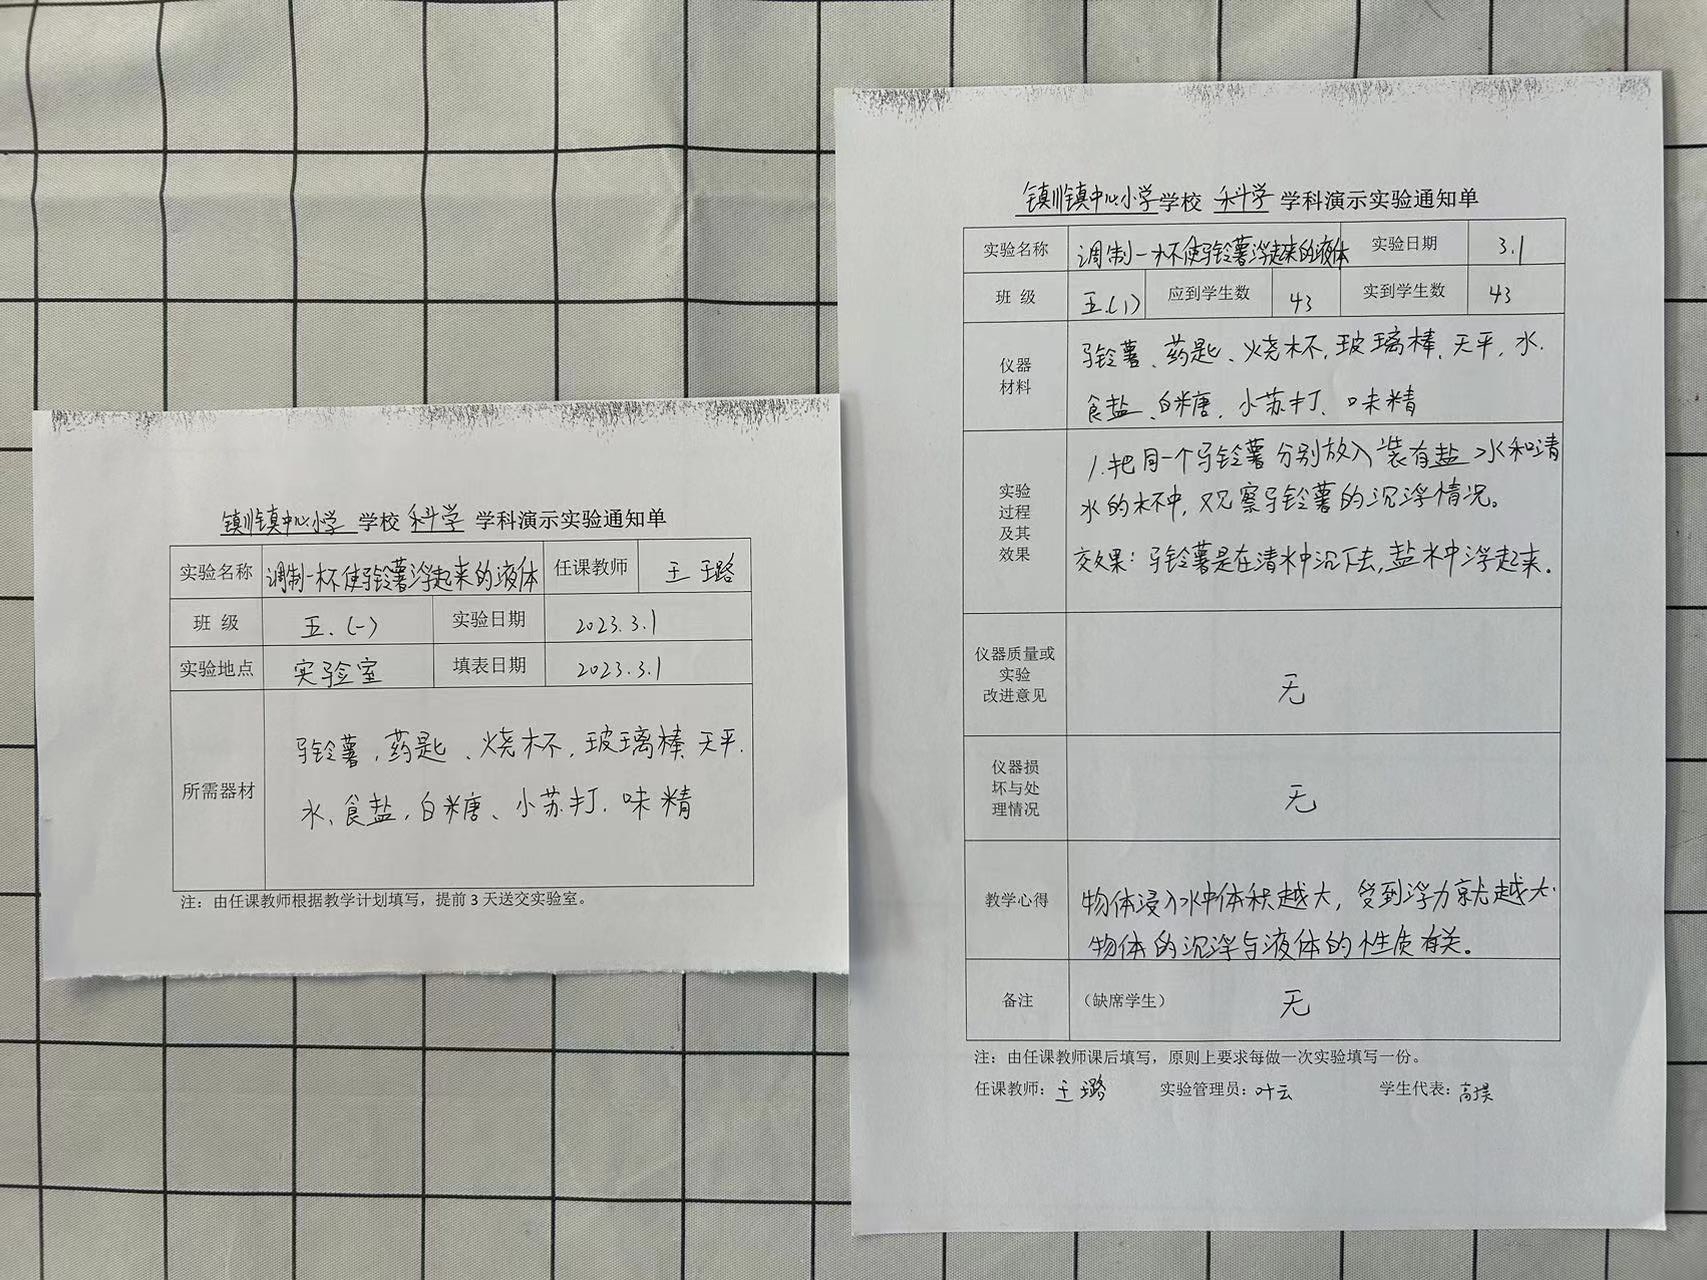 镇川镇中心小学 学校 科学 学科演示实验通知单
实验名称 调制一杯使马铃薯浮起来的液体 任课教师 王璐
班 级 五.(一) 实验日期 2023.3.1
实验地点 实验室 填表日期 2023.3.1
所需器材
马铃薯,药匙、烧杯,玻璃棒 天平.
水、食盐,白糖、小苏打.味精
注:由任课教师根据教学计划填写,提前3天送交实验室。
镇川镇中心小学学校 科学 学科演示实验通知单
实验名称 调制一杯使马铃薯浮起来的液体 实验日期 3.1
班 级 五.(1) 应到学生数 43 实到学生数 43
仪器
材料
马铃薯、药匙、烧杯,玻璃棒、天平,水.
食盐、白糖,小苏打、味精
实验
过程
及其
效果
1.把同一个马铃薯分别放入装有盐水和清
水的杯中,观察马铃薯的沉浮情况。
效果:马铃薯是在清水中沉下去,盐水中浮起来.
仪器质量或
实验
改进意见
无
仪器损
坏与处
理情况
无
教学心得
物体浸入水中体积越大,受到浮力就越大.
物体的沉浮与液体的性质有关。
备注 (缺席学生) 无
注:由任课教师课后填写,原则上要求每做一次实验填写一份。
任课教师:王璐 实验管理员:叶云 学生代表: